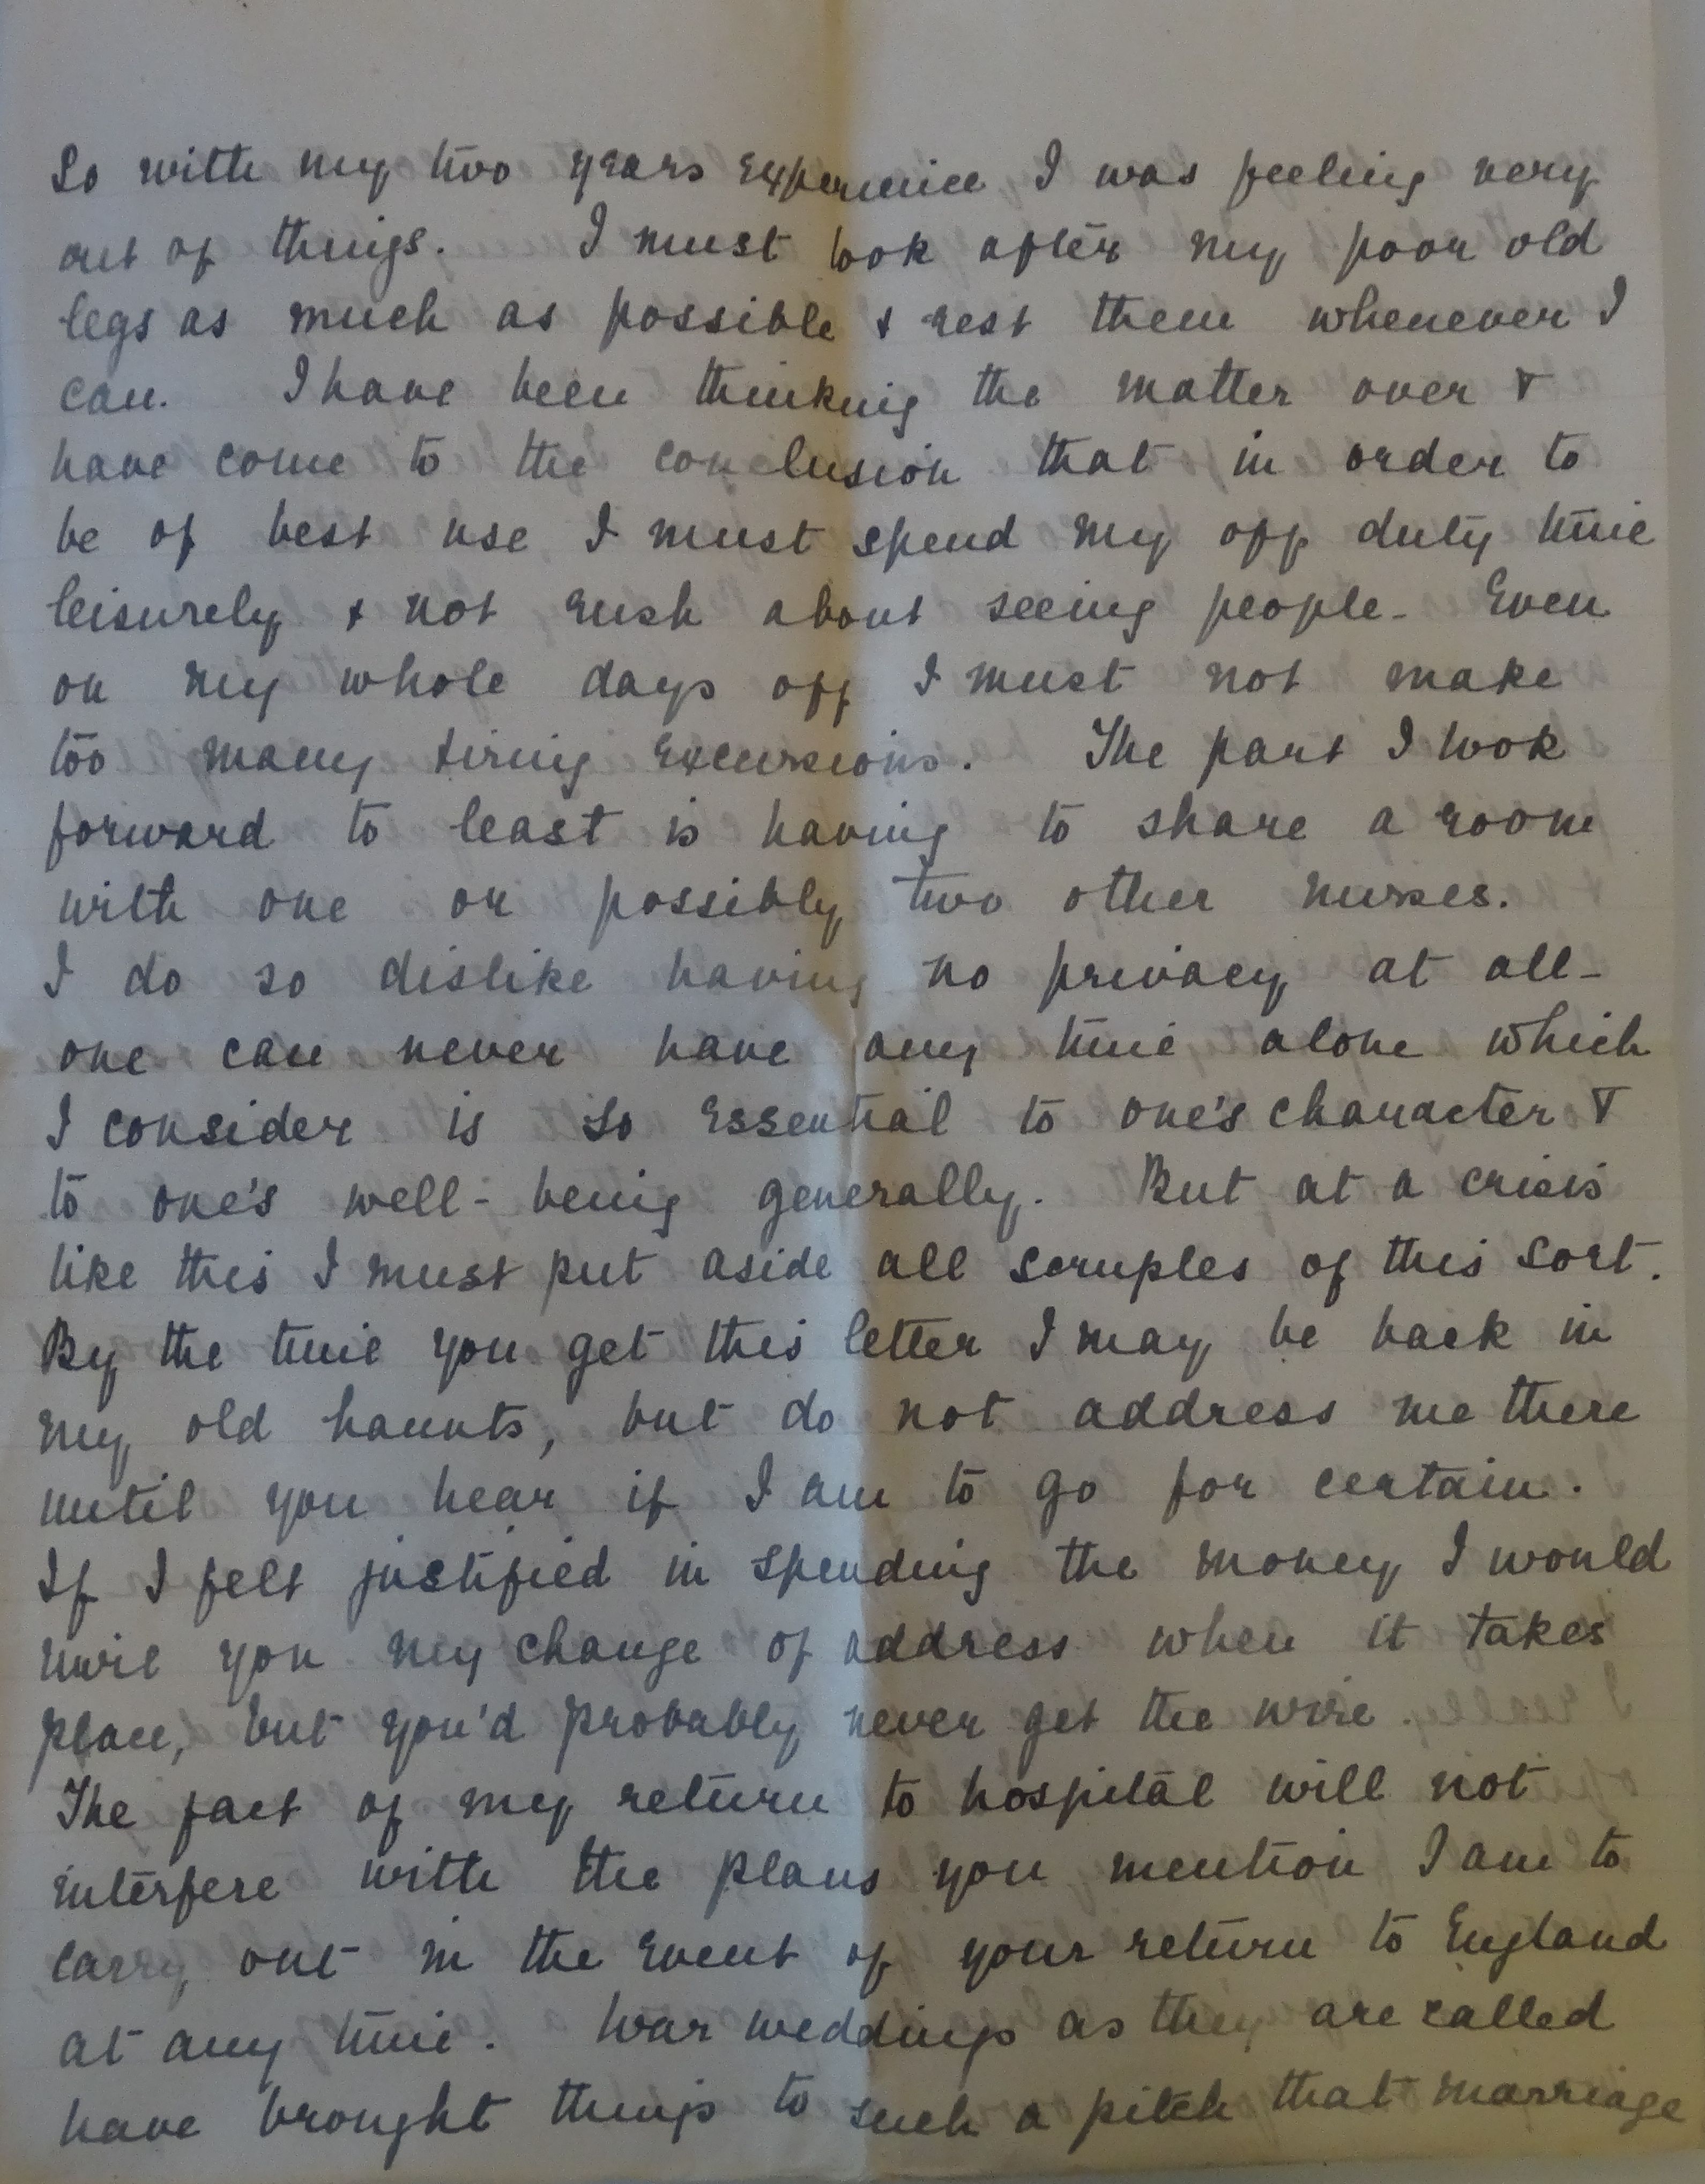 So with my two years experience I was feeling very
out of things. I must look after my poor old
legs as much as possible & rest them whenever I
can. I have been thinking the matter over &
have come to the conclusion that in order to
be of best use I must spend my off duty time
leisurely & not rush about seeing people. Even
on my whole days off I must not make
too many tiring excursions. The part I look
forward to least is having to share a room
with one or possibly two other nurses.
I do so dislike having no privacy at all -
one can never have any time alone which
I consider is so essential to one's character &
to one's well-being generally. But at a crisis
like this I must put aside all scruples of this sort.
By the time you get this letter I may be back in
my old haunts, but do not address me there
until you hear if I am to go for certain.
If I felt justified in spending the money I would
wire you my change of address when it takes
place, but you'd probably never get the wire.
The fact of my return to hospital will not
interfere with the plans you mention I am to
carry out in the event of your return to England
at any time. War weddings as they are called
have brought things to such a pitch that marriage